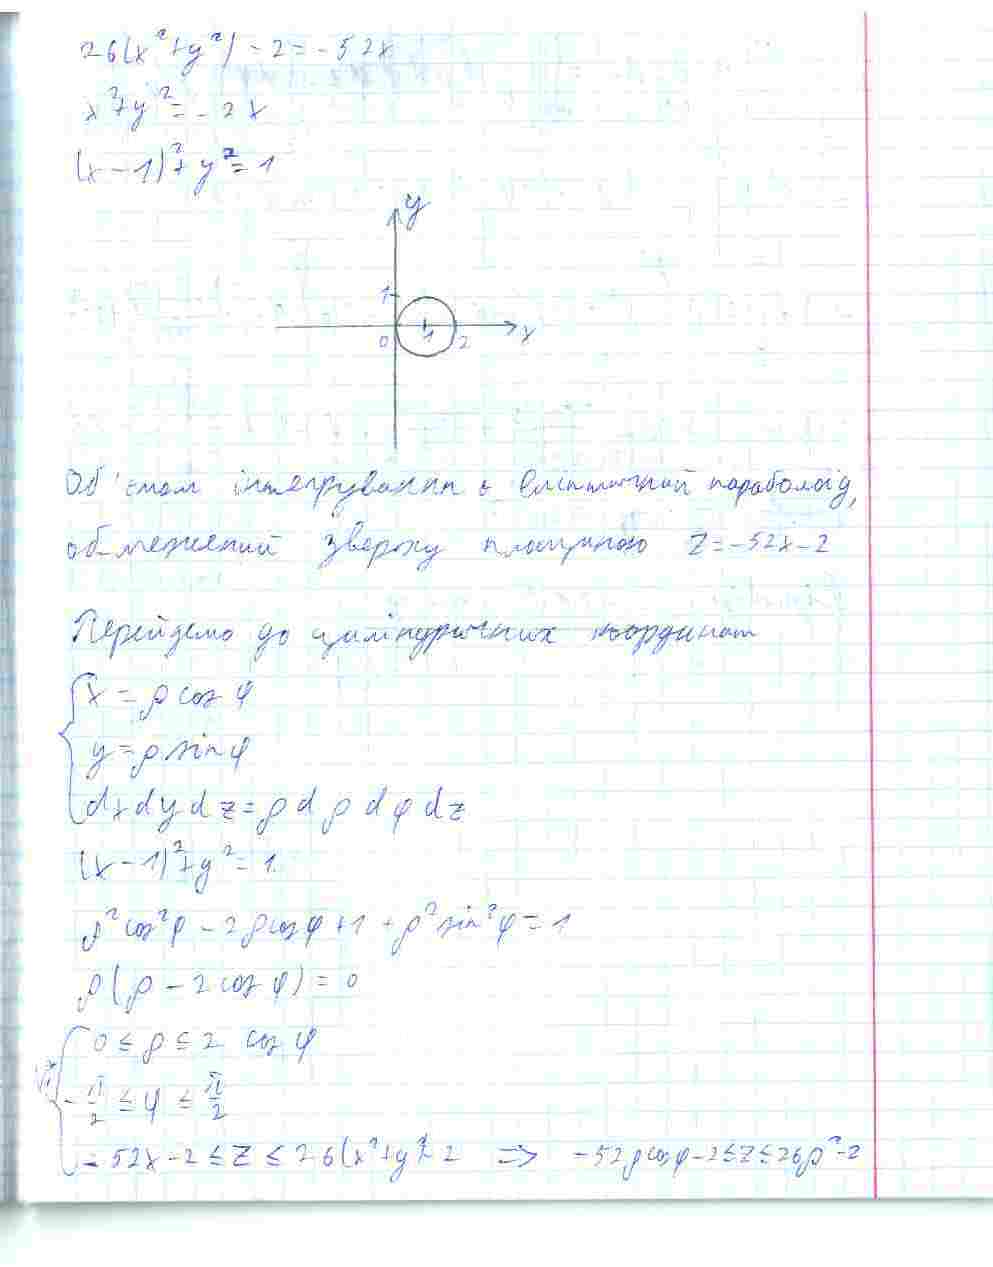 26(x²+y²) - 2 = -52x
x²+y² = -2x
(x-1)²+y² = 1
y
1
0 1 2 x
Об'ємом інтегрування є еліптичний параболоїд,
обмежений зверху площиною z = -52x - 2
Перейдемо до циліндричних координат
x = ρ cos φ
y = ρ sin φ
dxdydz = ρ dρ dφ dz
(x-1)²+y² = 1.
ρ² cos² φ - 2ρ cos φ + 1 + ρ² sin² φ = 1
ρ(ρ - 2 cos φ) = 0
0 ≤ ρ ≤ 2 cos φ
-π/2 ≤ φ ≤ π/2
-52x - 2 ≤ z ≤ 26(x²+y²) - 2 ⇒ -52ρcosφ - 2 ≤ z ≤ 26ρ² - 2